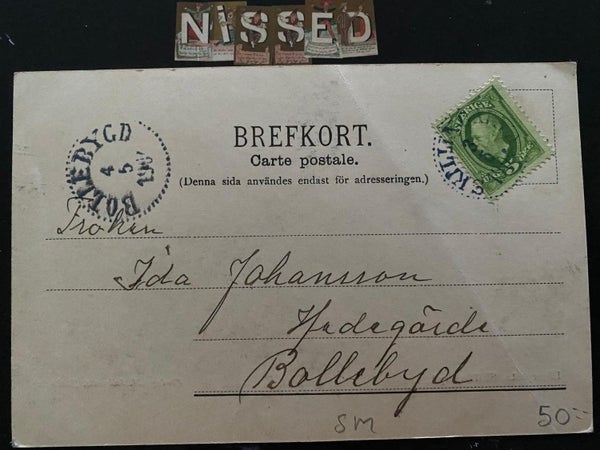 NISSED
BREFKORT.
Carte postale.
(Denna sida användes endast för adresseringen.)
BOLLEBYGD
4
5
SVERIGE
5
Fröken
Ida Johansson
Hedegärde
Bollebyd
SM
50:-